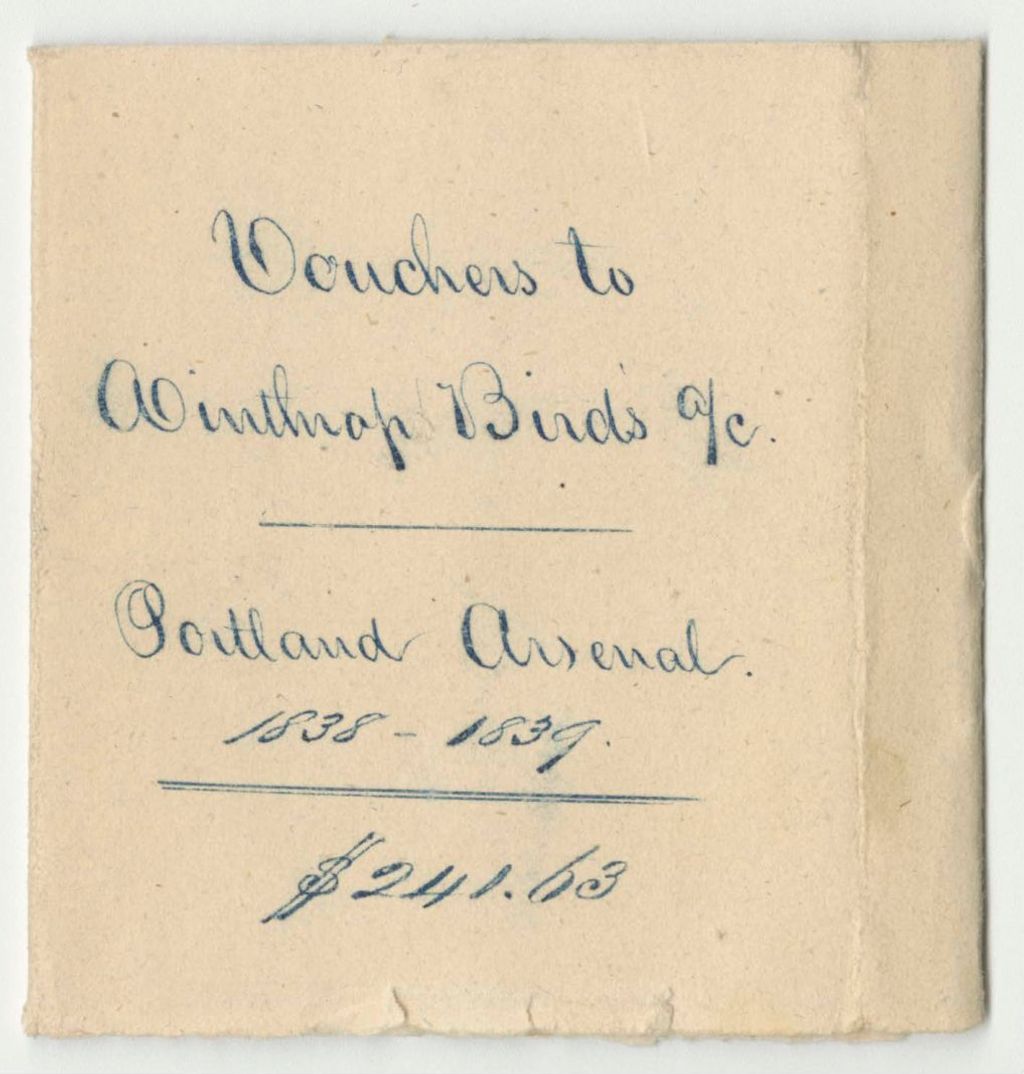 Vouchers to
Winthrop Bird's a/c.
Portland Arsenal.
1838 - 1839.
$241.63